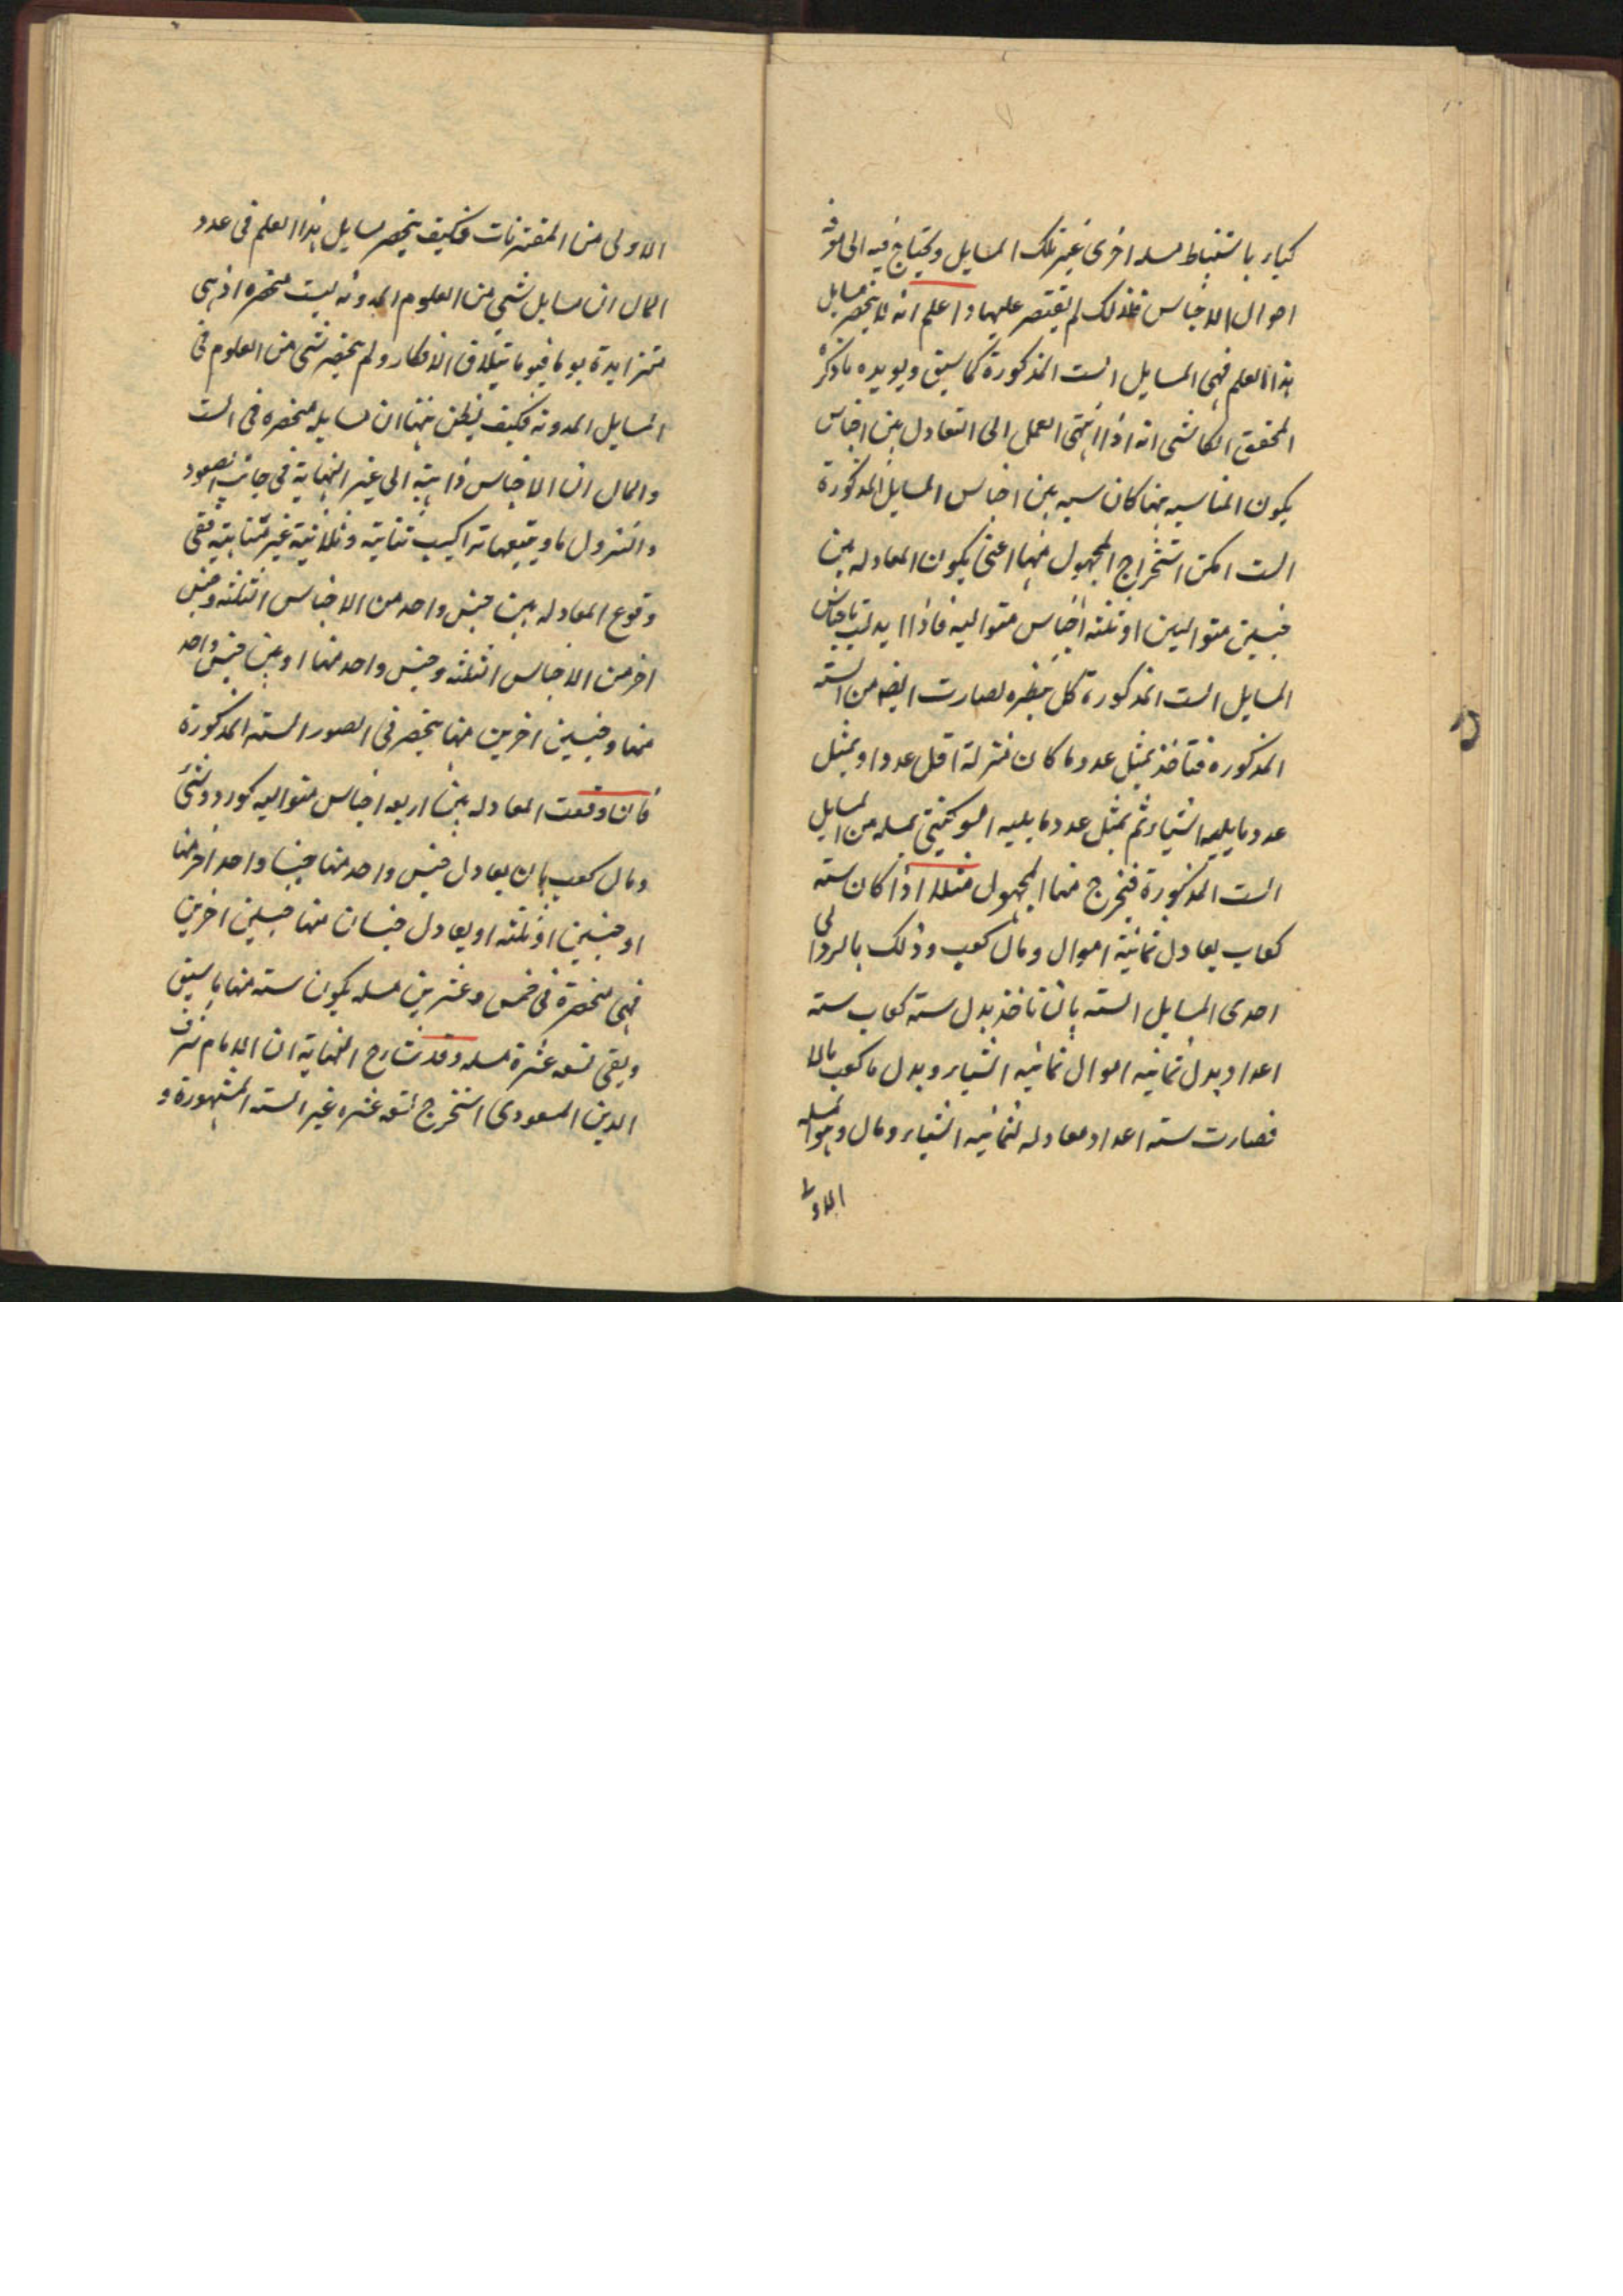 كبار باستنباط مسله اخرى غير تلك المسايل ويحتاج فيه الى معرفة
احوال الاجناس فلذلك لم يقتصر عليها واعلم انه لا ينحصر مسايل
هذا العلم فهى المسايل الست المذكورة كما سبق ويويده ما ذكره
المحقق الكاشى انه اذا انتهى العمل الى التعادل بين اجناس
يكون المناسبه بينها كان سبه بين اجناس المسايل المذكورة
الست امكن استخراج المجهول منها اعنى يكون المعادله بين
جنسين متواليين او ثلثه اجناس متواليه فاذا ابدلت باجناس
المسايل الست المذكورة كل بنظيره لصارت ايضا من السته
المذكوره فتاخذ بمثل عدد ما كان منزلة اقل عددا وبمثل
عدد ما يليه اشياء ثم بمثل عدد ما يليه اموالا حتى بمسله من المسايل
الست المذكورة فيخرج منها المجهول مثلا اذا كان سته
كعاب يعادل ثمانية اموال ومال كعب وذلك بالرد الى
احدى المسايل السته بان تاخذ بدل سته كعاب سته
اعداد وبدل ثمانيه اموال ثمانيه اشياء وبدل مال كعب مالا
فصارت سته اعداد معادله لثمانيه اشياء ومال وهو المسله
الاولى
الاولى من المقترنات فكيف ينحصر مسايل هذا العلم فى عدد
الحال ان مسايل شى من العلوم المدونه ليست منحصره اذ هى
متزايدة يوما فيوما بتلاحق الافكار ولم ينحصر شى من العلوم فى
المسايل المدونه فكيف يظن هنا ان مسايله منحصره فى الست
والحال ان الاجناس ذاهبة الى غير النهاية فى جانب الصعود
والنزول ويتبعها تراكيب ثنائية وثلاثية غير متناهية ففى
وقوع المعادله بين جنس واحد من الاجناس الثلثه وجنس
اخر من الاجناس الثلثه وجنس واحد منها او بين جنس واحد
منها وجنسين اخرين منها ينحصر فى الصور السته المذكورة
فان وقعت المعادله بين اربعه اجناس متواليه كعدد وشى
ومال كعب بان يعادل جنس واحد منها جنسا واحد اخر منها
او جنسين او ثلثه او يعادل جنسان منها جنسين اخرين
فهى منحصرة فى خمس وعشرين مسله يكون سته منها ما سبق
وبقى تسعه عشرة مسله وقد شارح النهاية ان الامام شرف
الدين المسعودى استخرج تسعه عشره غير السته المشهورة و